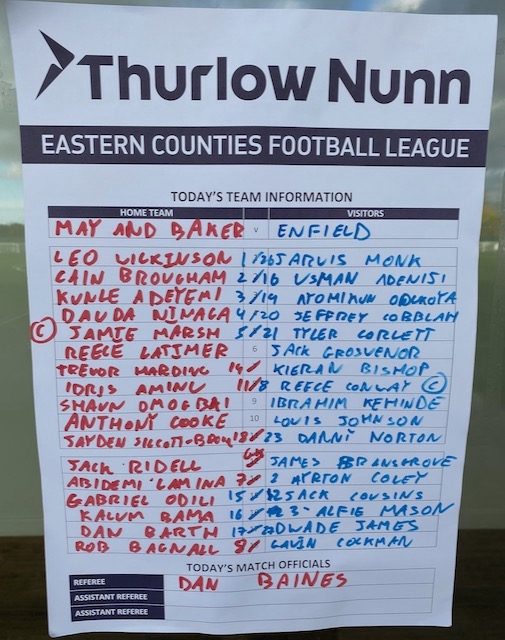 Thurlow Nunn
EASTERN COUNTIES FOOTBALL LEAGUE
TODAY'S TEAM INFORMATION
HOME TEAM VISITORS
MAY AND BAKER v ENFIELD
LEO WILKINSON 1 /26 JARVIS MONK
CAIN BROUGHAM 2 /16 USMAN ADENISI
KUNLE ADEYEMI 3 /19
DAUDA NIMAGA 4 /20 JEFFREY COBBLAH
C JAMIE MARSH 5 /21 TYLER CORLETT
REECE LATIMER 6 JACK GROSVENOR
TREVOR HARDING 14 KIERAN BISHOP
IDRIS AMINU 11/8 REECE CONWAY C
SHAUN OMOGBAI 9 IBRAHIM KEHINDE
ANTHONY COOKE 10 LOUIS JOHNSON
JAYDEN 18/23 DANNI NORTON
JACK RIDELL JAMES BRANSGROVE
ABIDEMI LAMINA 7 / 2 AYRTON COLEY
GABRIEL ODILI 15 /12 JACK COUSINS
KALUM BAMA 16 / 3 ALFIE MASON
DAN BARTH 17 / WADE JAMES
ROB BAGNALL 8 / GAVIN COCKMAN
TODAY'S MATCH OFFICIALS
REFEREE DAN BAINES
ASSISTANT REFEREE
ASSISTANT REFEREE